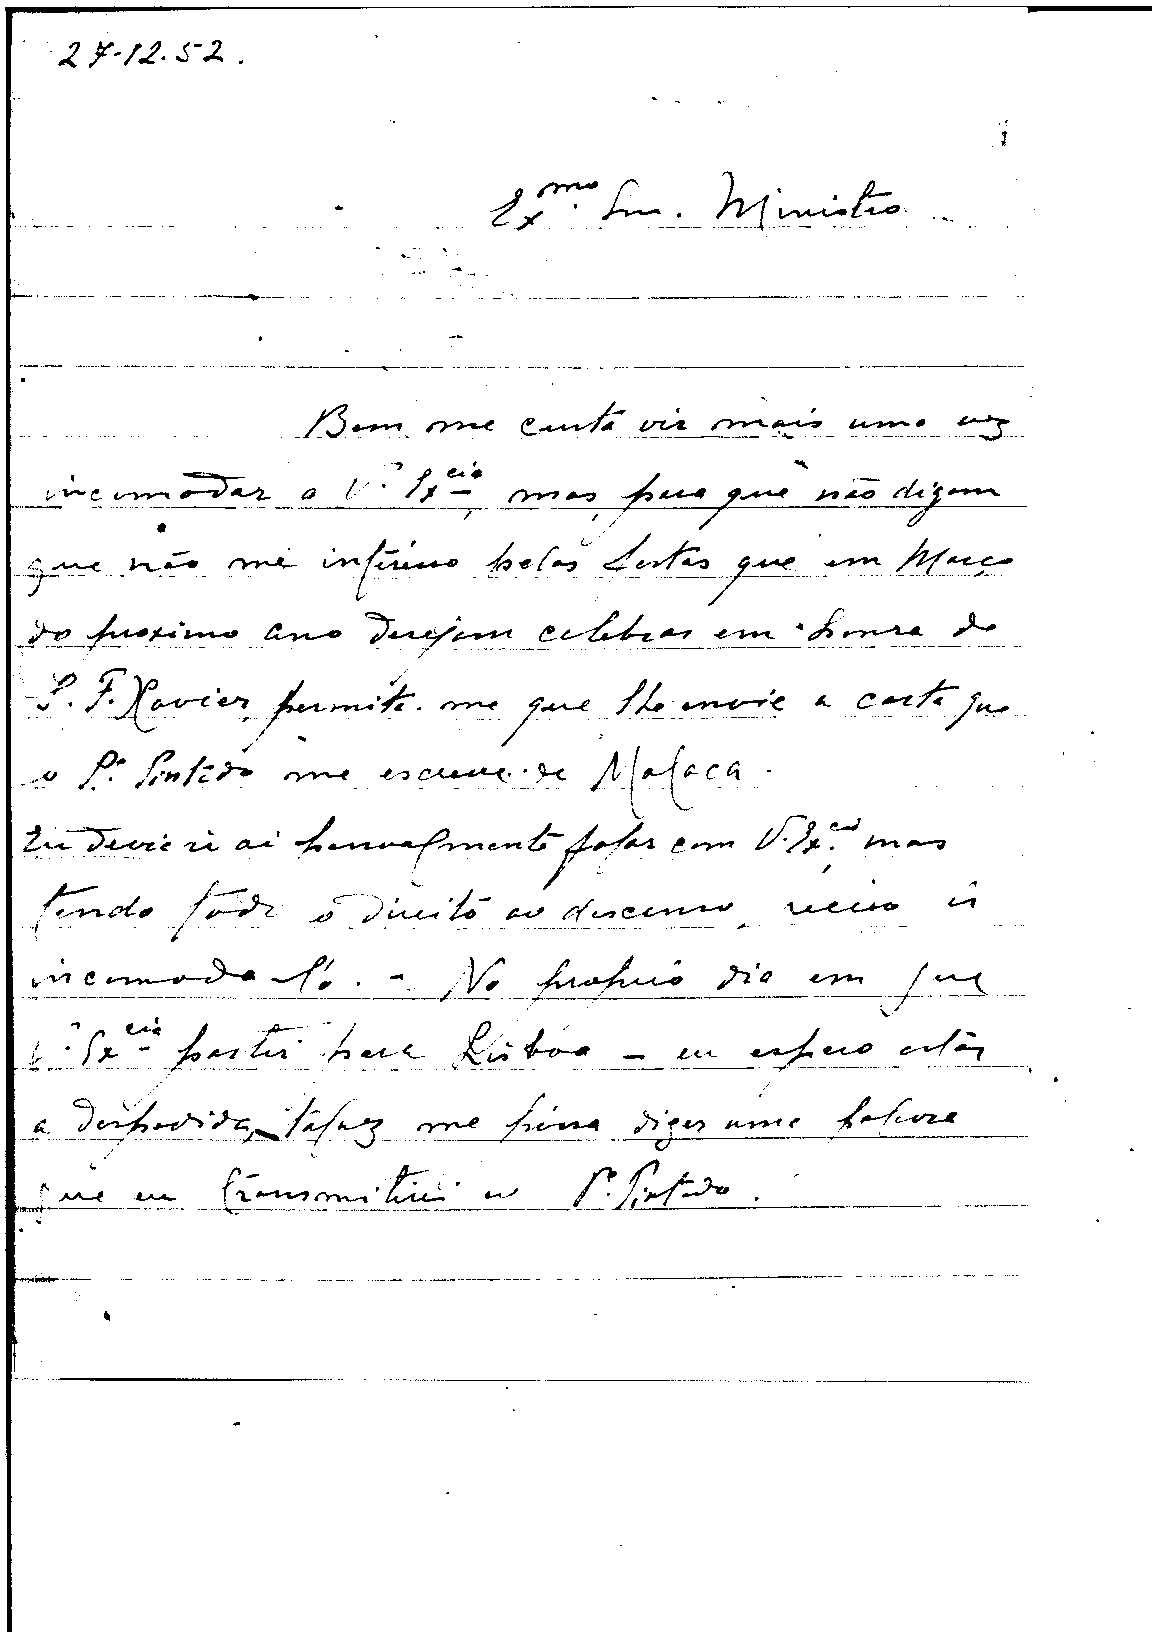 27-12.52.
Ex.mo Snr. Ministro
Bem me custa vir mais uma vez
incomodar a V.ª Ex.cia, mas, para que não digam
que não me intéresso pelas festas que em Março
do proximo ano desejam celebrar em honra de
S. F. Xavier, permita-me que lhe envie a carta que
o P.e Pintado me escreve de Malaca.
Eu devia ir ai pessoalmente falar com V. Ex.cia, mas
tendo todo o direito ao descanso, receio ir
incomoda-lo. - No proprio dia em que
V.ª Ex.cia partir para Lisboa - eu espero estar
a despedida, talvez me possa dizer uma palavra
que eu transmitirei ao P.e Pintado.